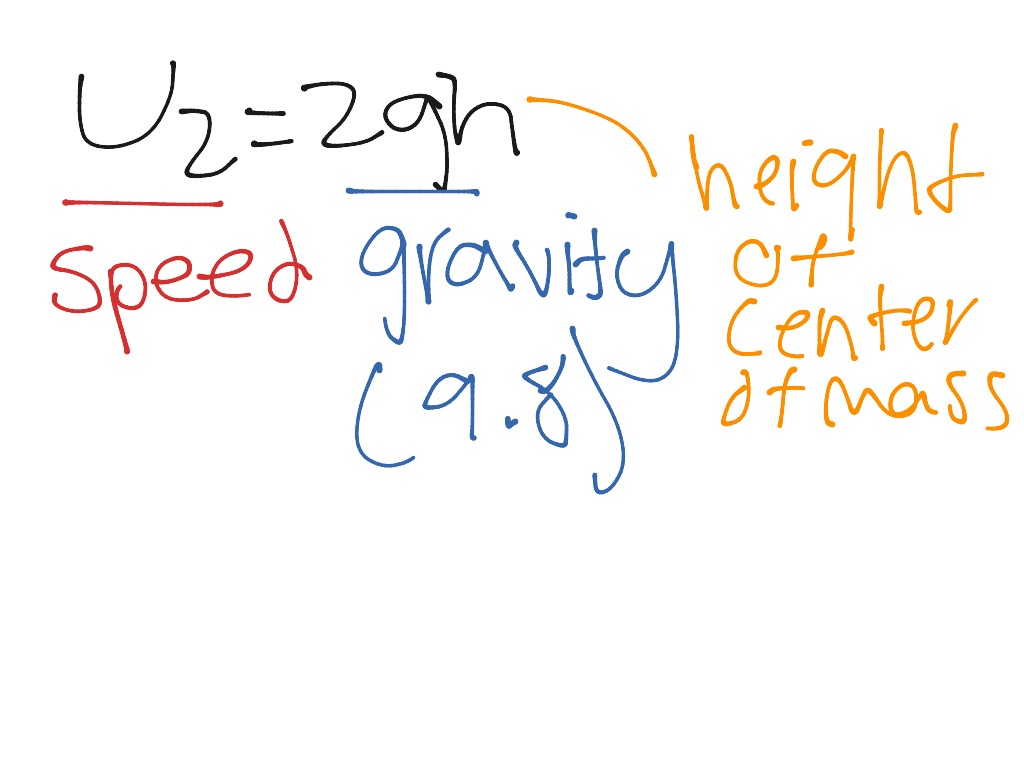 U2=2gh
speed
gravity
(9.8)
height
of
center
of mass